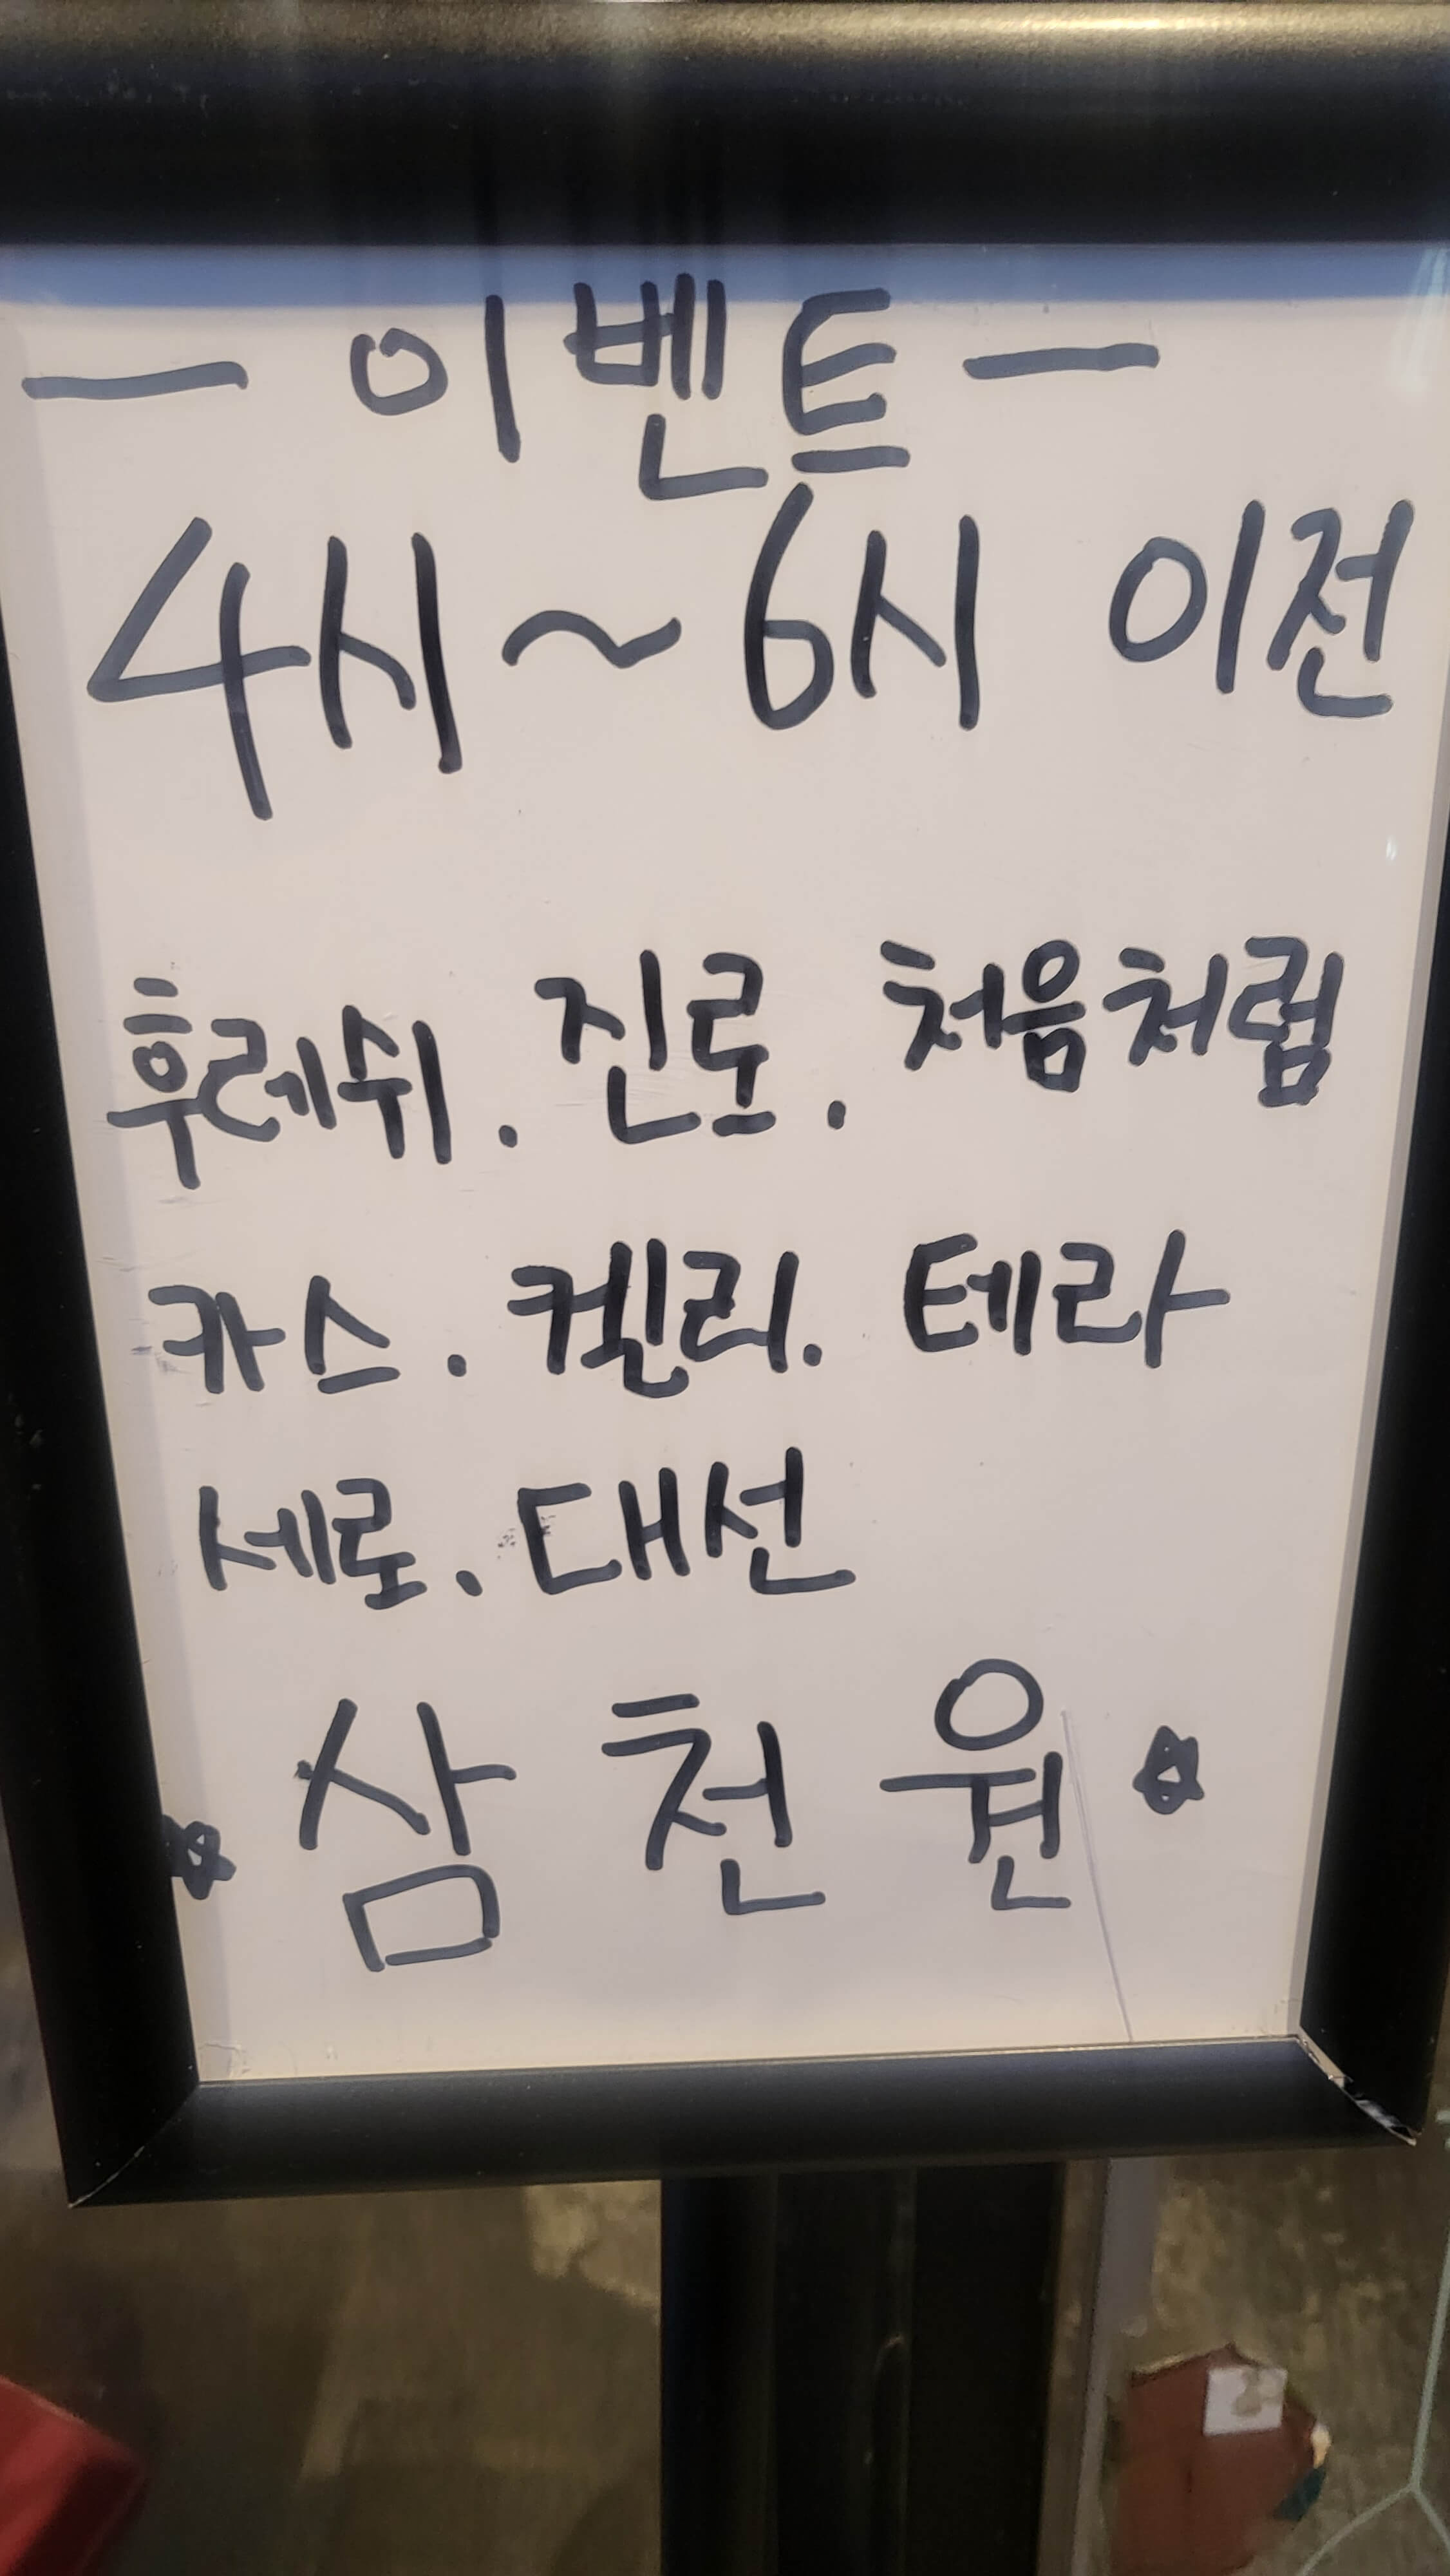 — 이벤트 —
4시 ~ 6시 이전
후레쉬. 진로. 처음처럼
카스. 켈리. 테라
세로. 대선
☆ 삼천원 ☆